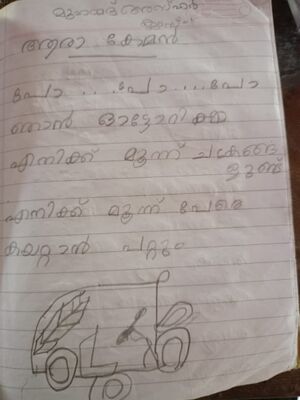 മുഹമ്മദ് അസ്ഹർ
ക്ലാസ്-1
ആരാ കേമൻ
പോ....പോ....പോ
ഞാൻ ഓട്ടോറിക്ഷ
എനിക്ക് മൂന്ന് ചക്രങ്ങ
ളുണ്ട്
എനിക്ക് മൂന്ന് പേരെ
കയറ്റാൻ പറ്റും